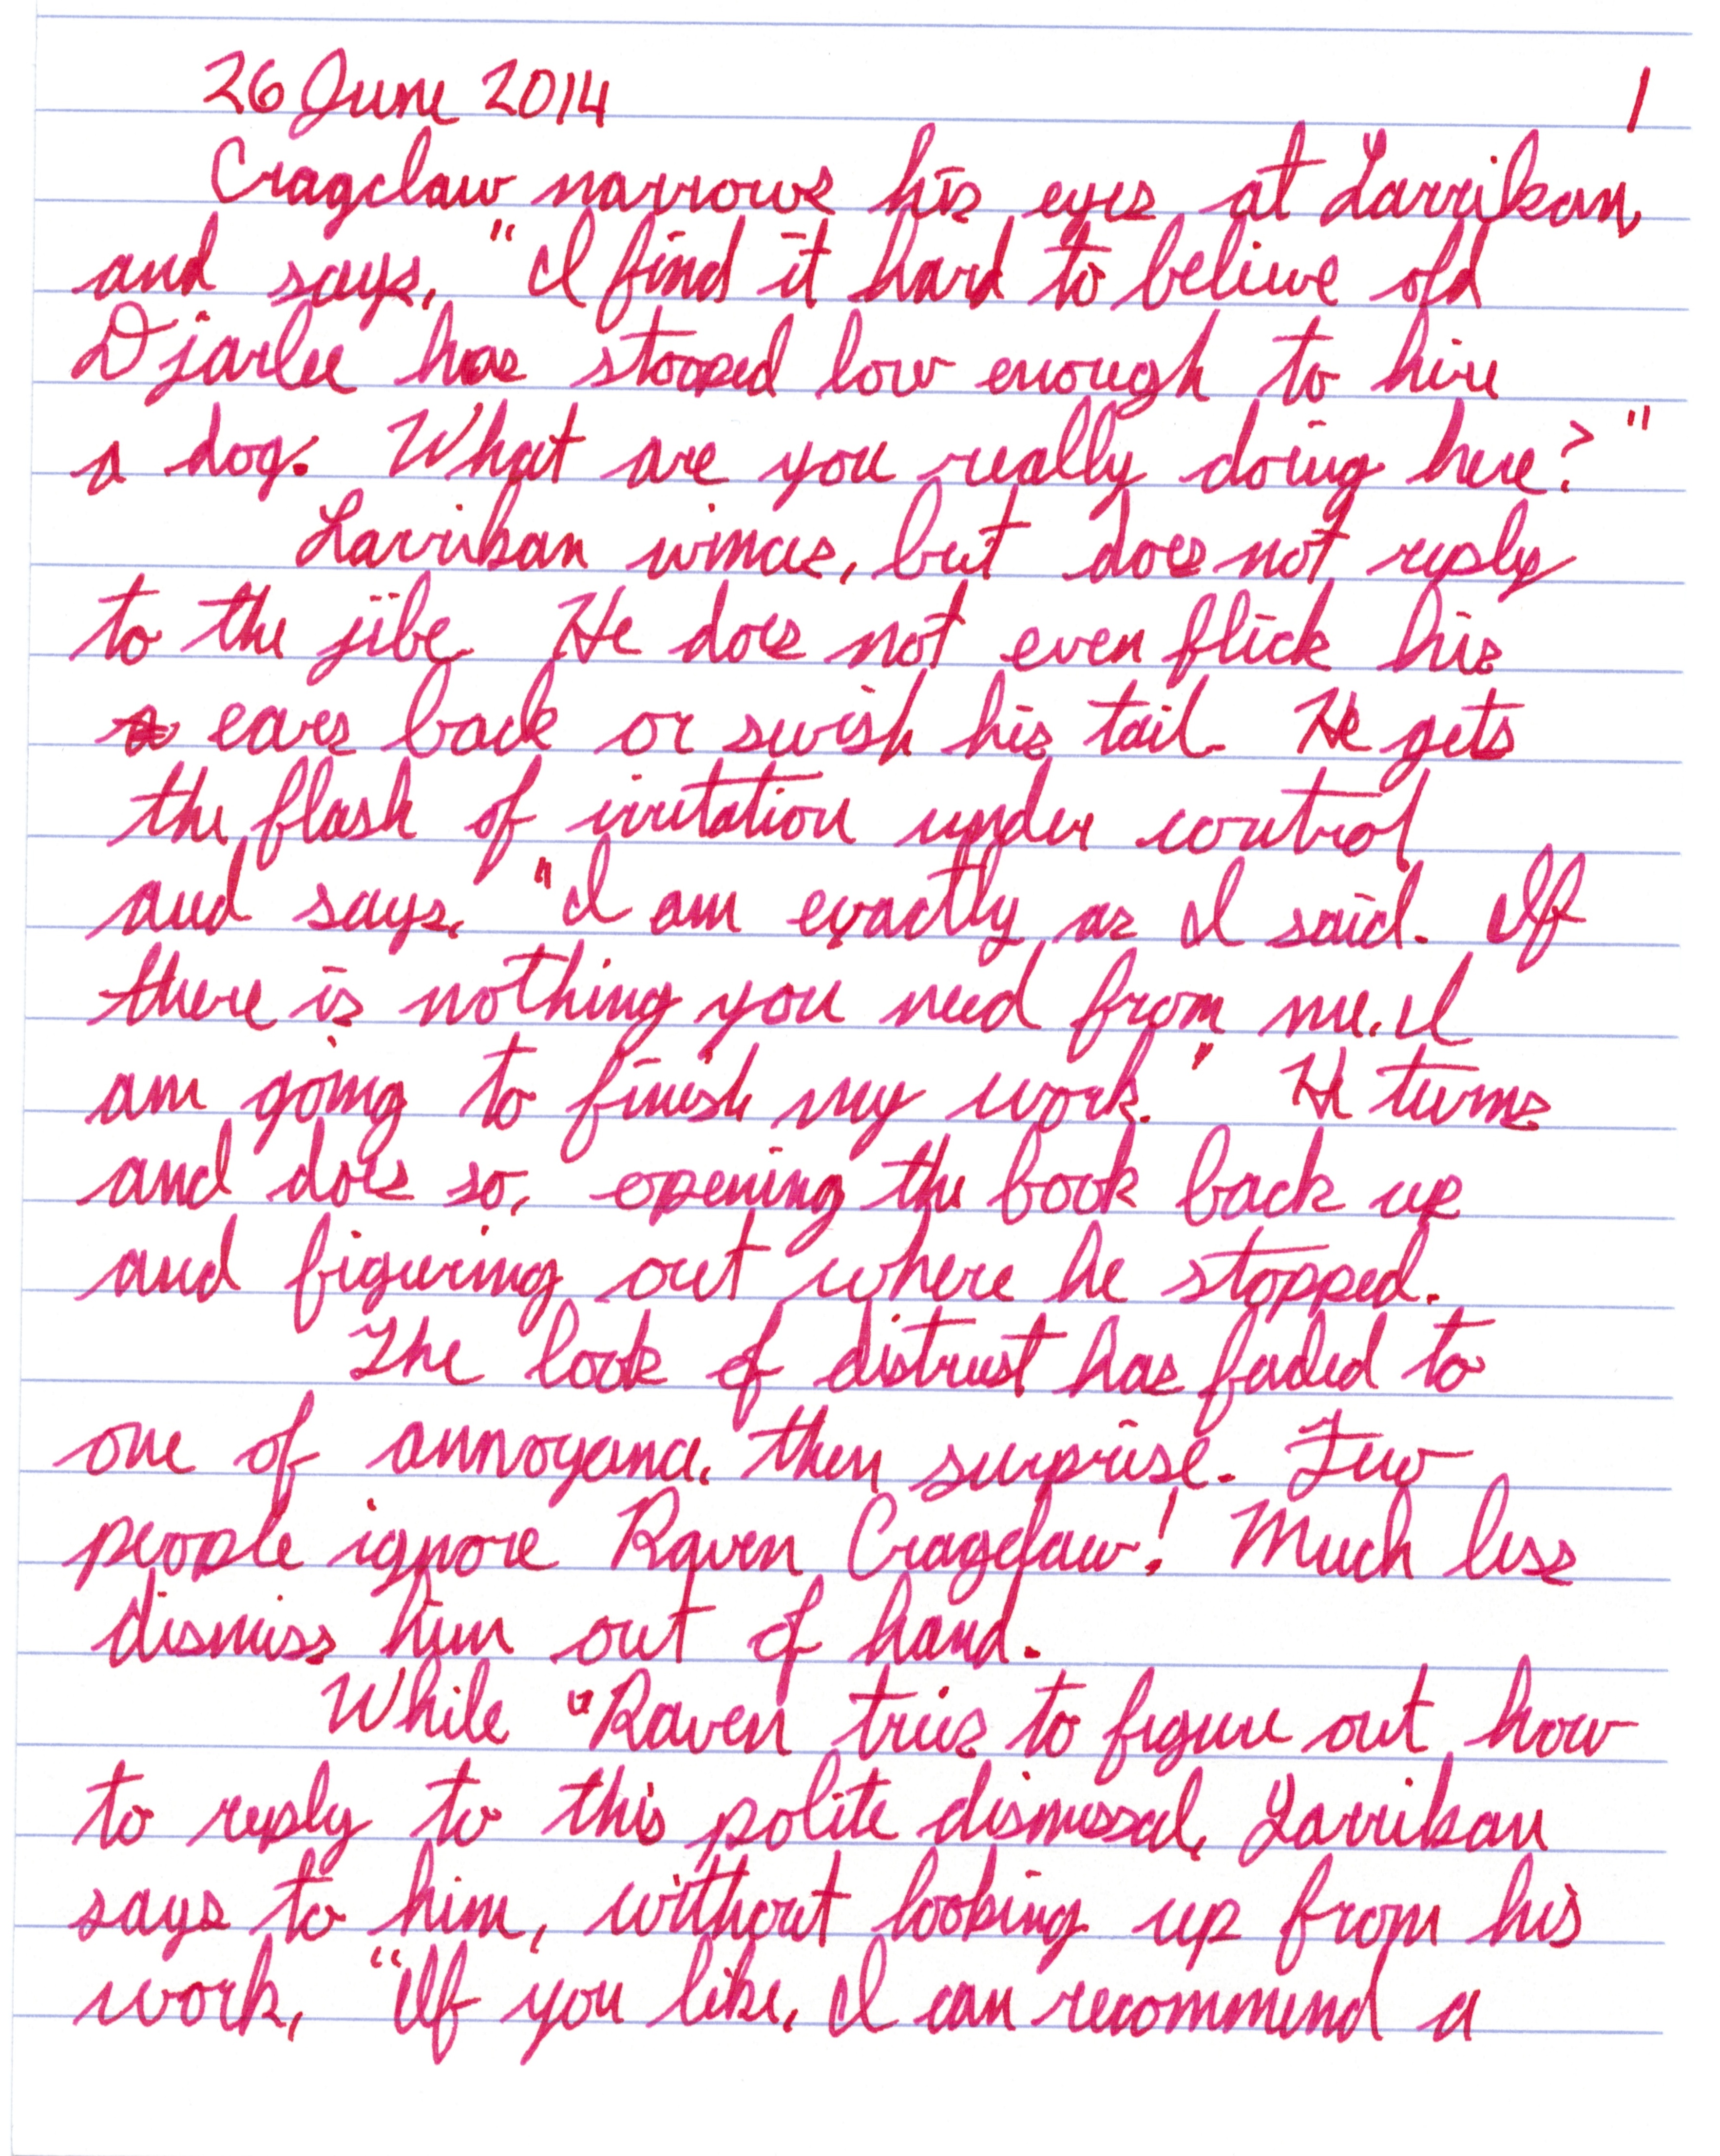 26 June 2014 1
Cragclaw narrows his eyes at Larrikan,
and says, "I find it hard to believe old
Djarlee has stooped low enough to hire
a dog. What are you really doing here?"
Larrikan winces, but does not reply
to the jibe. He does not even flick his
ears back or swish his tail. He gets
the flash of irritation under control
and says, "I am exactly as I said. If
there is nothing you need from me, I
am going to finish my work." He turns
and does so, opening the book back up
and figuring out where he stopped.
The look of distrust has faded to
one of annoyance, then surprise. Few
people ignore Raven Cragclaw! Much less
dismiss him out of hand.
While "Raven tries to figure out how
to reply to this polite dismissal, Larrikan
says to him, without looking up from his
work, "If you like, I can recommend a